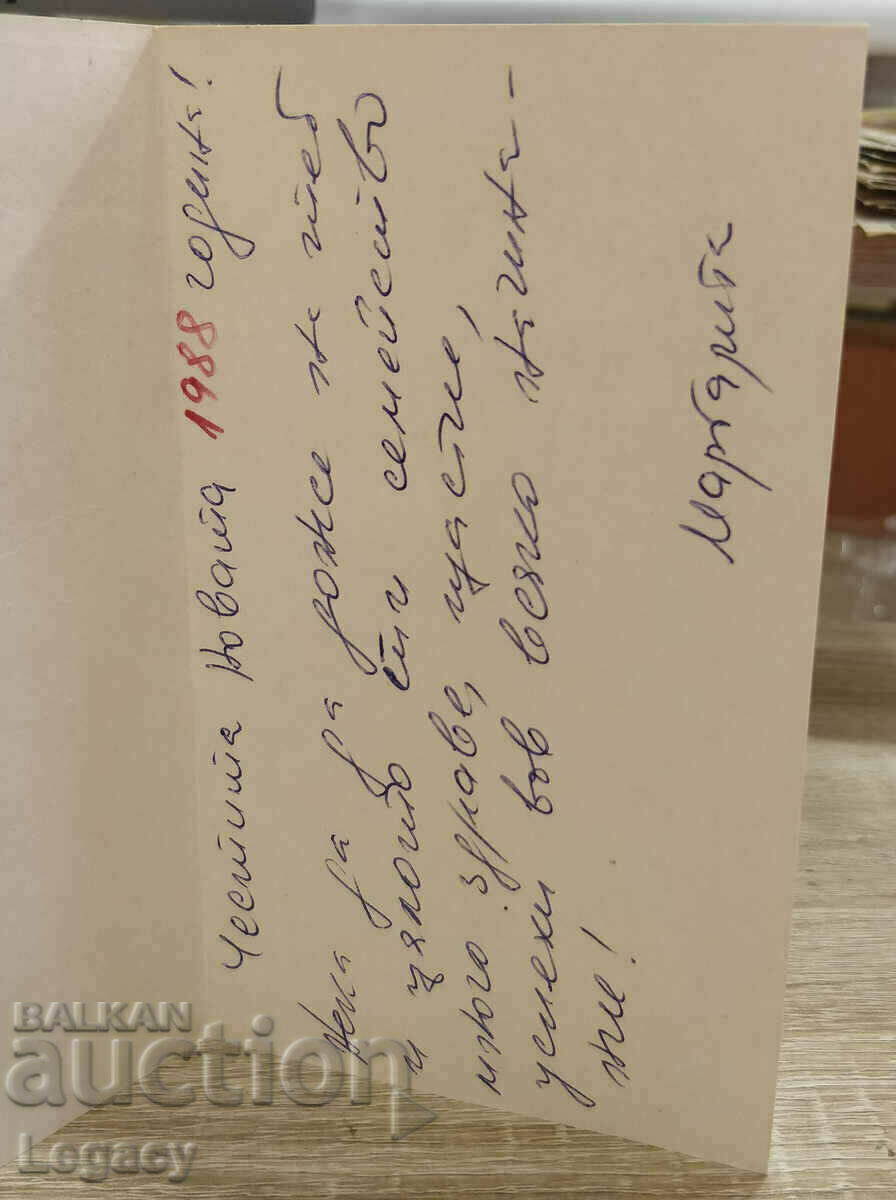 Честита Новата 1988 година!
Нека да да доже на теб
и цялото ти семейство
много здраве, щастие,
успехи във всяко начина-
ние!
Маргарита
BALKAN
auction
Legacy